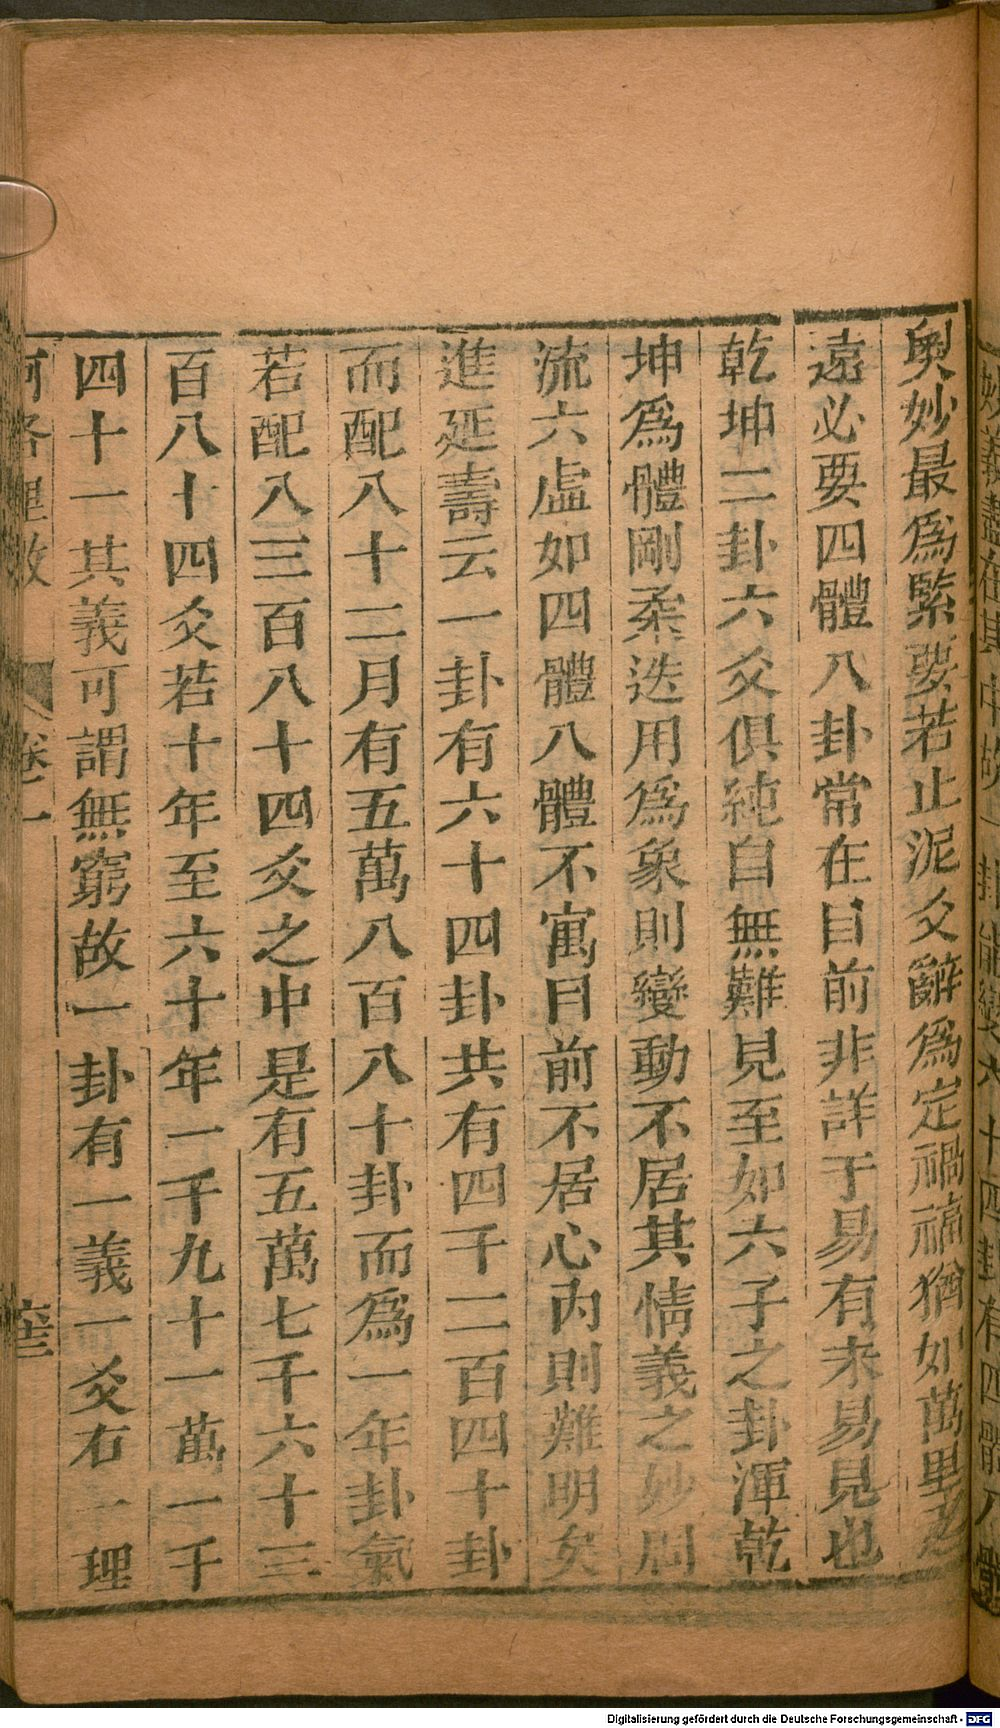 奧妙最為緊要若止泥爻辭為定禍福猶如萬里之
遠必要四體八卦常在目前非詳于易有未易見也
乾坤二卦六爻俱純自無難見至如六子之卦渾乾
坤為體剛柔迭用為象則變動不居其情義之妙周
流六虛如四體八體不寓目前不居心內則難明矣
進延壽云一卦有六十四卦共有四千二百四十卦
而配八十二月有五萬八百八十卦而為一年卦氣
若配八三百八十四爻之中是有五萬七千六十三
百八十四爻若十年至六十年一千九十一萬一千
四十一其義可謂無窮故一卦有一義一爻右一理
河洛理數
卷一
Digitalisierung gefördert durch die Deutsche Forschungsgemeinschaft - DFG